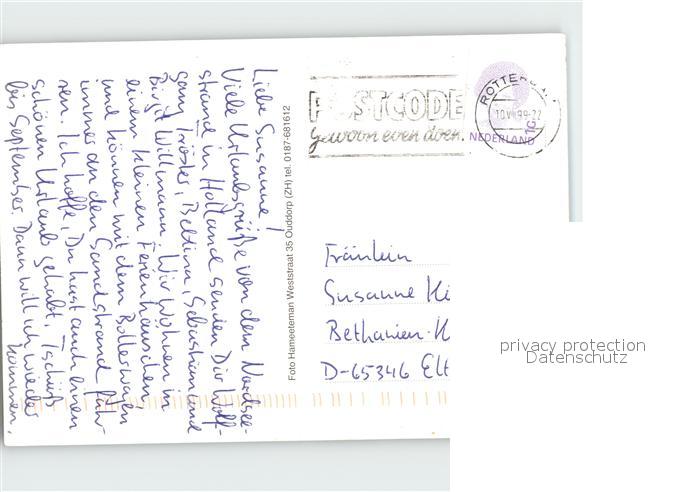 Liebe Susanne!
Viele Urlaubsgrüße von dem Nordsee-
strand in Holland senden Dir Wolf-
gang, Bettina, Sebastian und
Birgit Willmann. Wir wohnen in
einem kleinen Ferienhäuschen
und können mit dem Bollerwagen
immer an den Sandstrand fah-
ren. Ich hoffe, Du hast auch einen
schönen Urlaub gehabt. Tschüß
bis September. Dann will ich wieder
kommen.
Foto Hameeteman Weststraat 35 Ouddorp (ZH) tel. 0187-681612
POSTCODE
gewoon even doen.
NEDERLAND
Fräulein
Susanne Hi
Bethanien-H
D-65346 Elt
privacy protection
Datenschutz